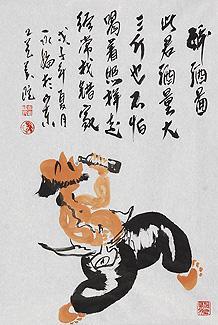 醉酒图
此君酒量大
三斤也不怕
喝着照样走
经常找错家
戊子年夏月
永红于山东